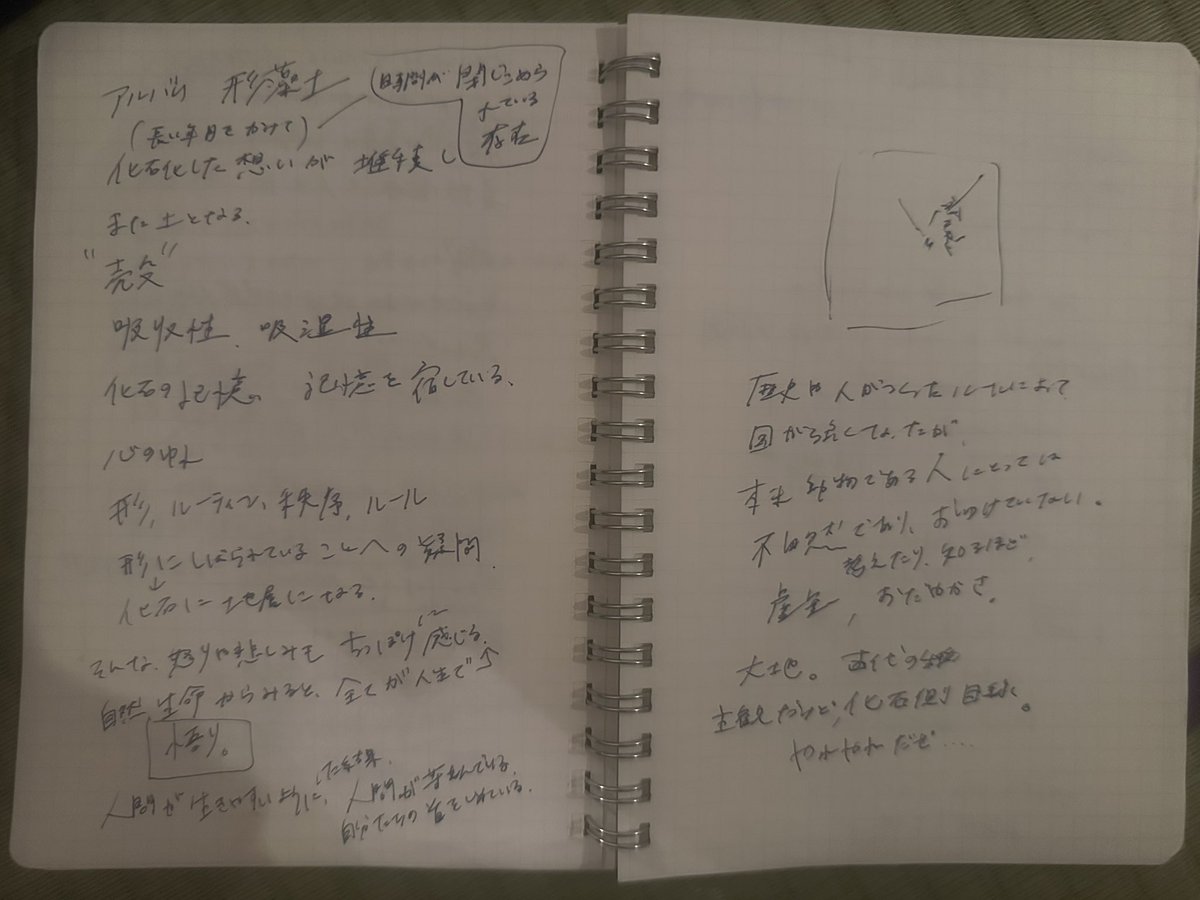 アルバム 形藻土
時間が閉じこめられている存在
(長い年月をかけて)
化石化した想いが堆積し
また土となる。
"売父"
吸収性、吸湿性
化石の記憶。 記憶を宿している。
心のゆれ
形、ルーティン、秩序、ルール
形にしばられていることへの疑問。
↓
化石に 地層になる。
そんな、怒りや悲しみも ちっぽけに感じる。
自然、生命からみると、全てが人生で↑
悟り。
人間が生きやすいように、した結果、
人間が苦しんでいる。
自分たちの首をしめている。
歴史は人がつくったルールによって
国が強くなったが、
本来 動物である人にとっては
不自然であり、
考えたり、知るほど、
おだやかさ。
大地。 古代の
主観だけど、化石側目線。
やれやれだぜ....